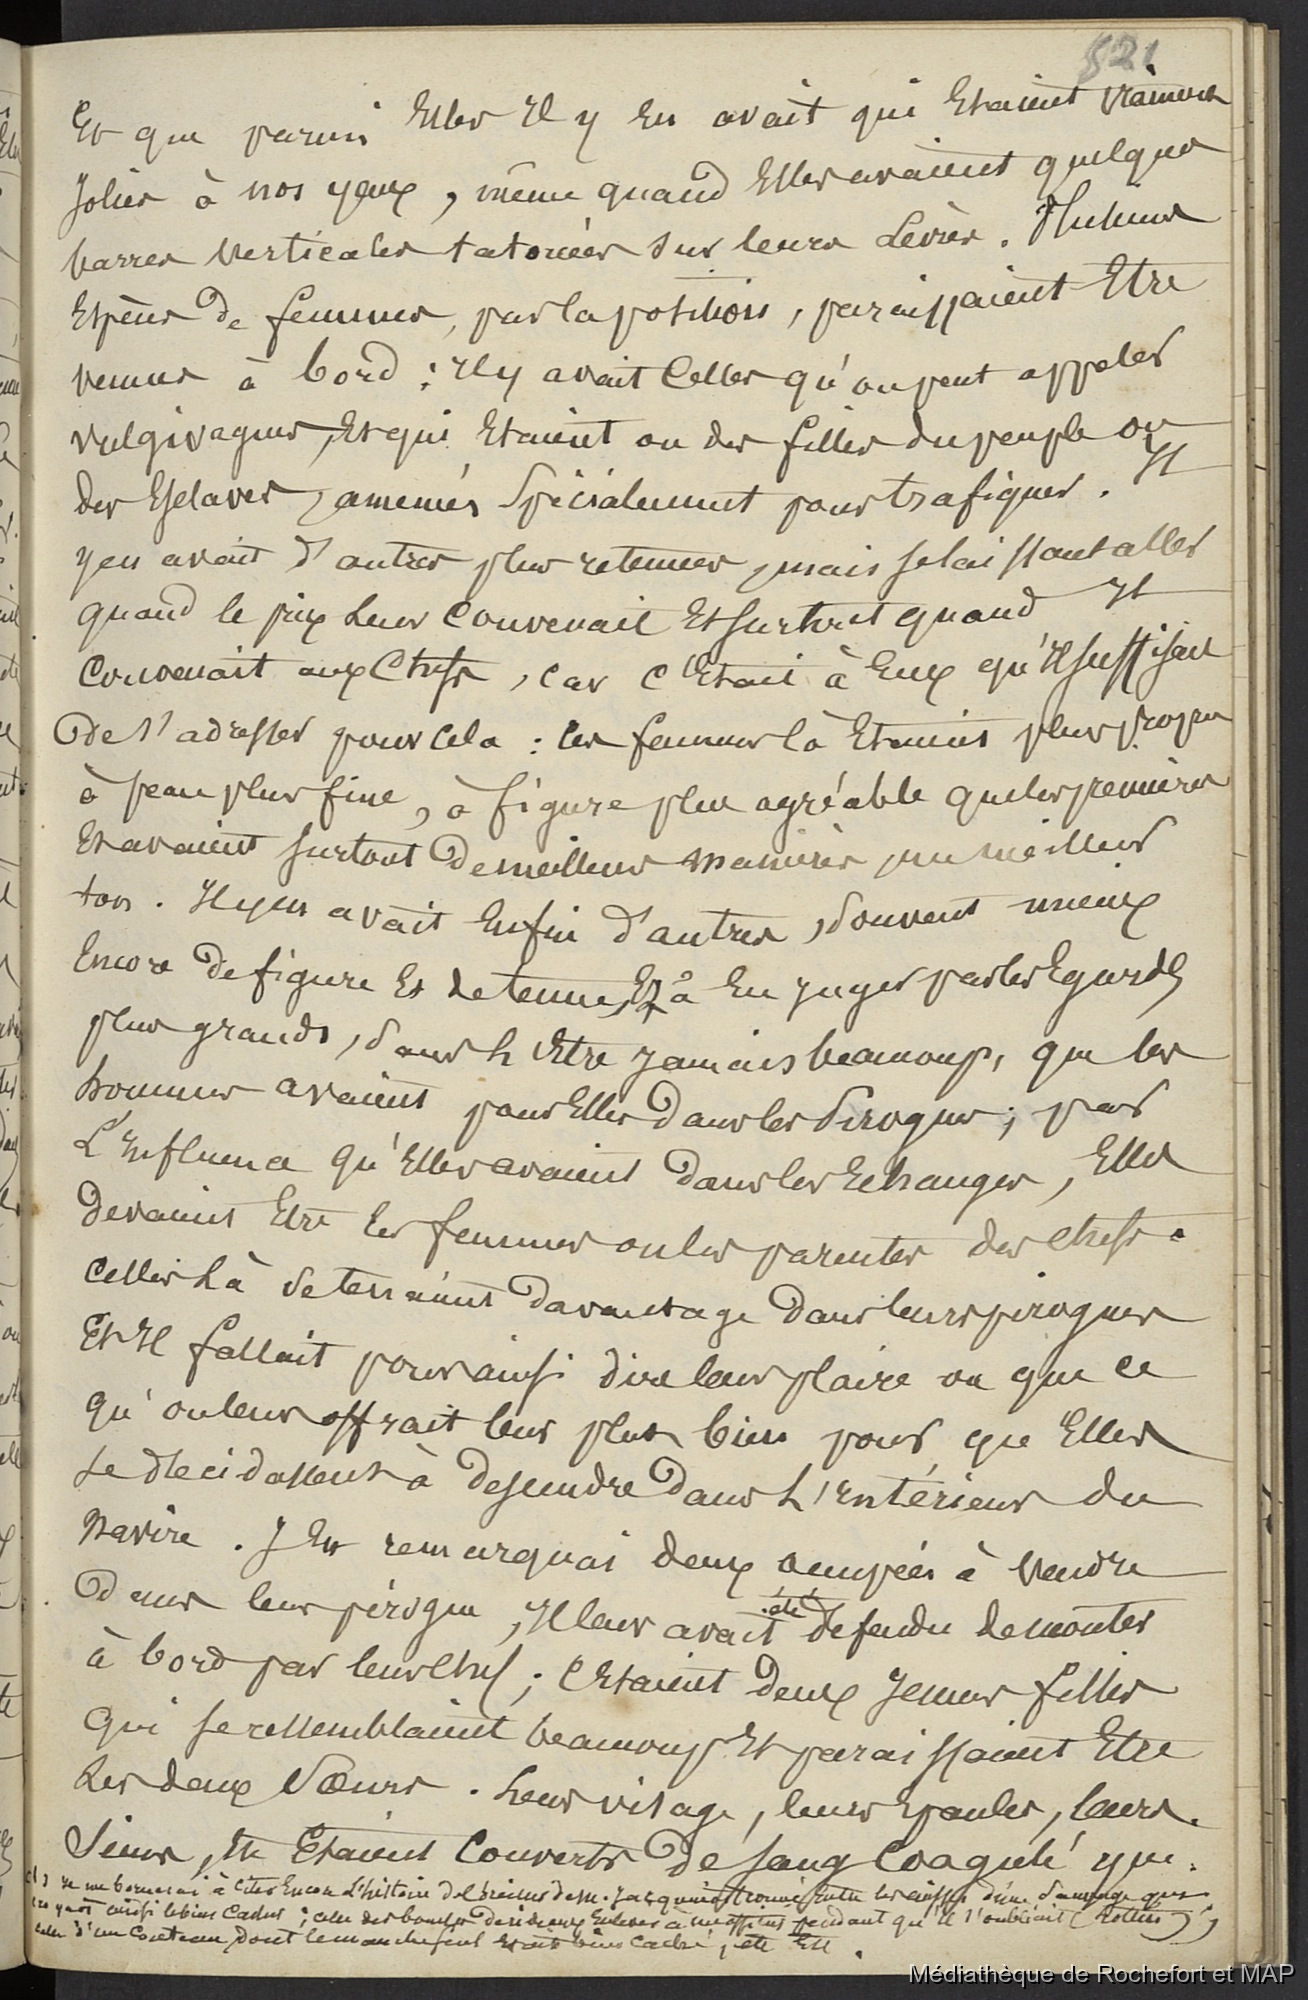 521
Et que parmi Elles Il y En avait qui Etaient vraiment
Jolies à nos yeux, même quand Elles avaient quelques
barres verticales tatouées sur leurs Lèvres. Plusieurs
Espèces De femmes, par la position, paraissaient Etre
venues à bord : Il y avait Celles qu'on peut appeler
vulgivagues, Et qui Etaient ou des filles du peuple ou
des Esclaves, amenées Spécialement pour trafiquer. Il
y en avait d'autres plus retenues, mais se laissant aller
quand le prix leur Convenait Et surtout quand Il
Convenait aux Chefs, Car C'Etait à Eux qu'Il suffisait
De s'adresser pour cela : ces femmes là Etaient plus propres
à peau plus fine, à figure plus agréable que les premières
Et avaient surtout De meilleures manières, un meilleur
ton. Il y en avait Enfin d'autres, souvent mieux
Encore De figure Et de tenue, Et à En juger par les Egards
plus grands, sans l'Etre jamais beaucoup, que les
hommes avaient pour Elles Dans les Pirogues ; par
L'Influence qu'Elles avaient Dans les Echanges, Elles
devaient Etre les femmes ou les parentes des chefs.
Celles là se tenaient Davantage Dans leurs pirogues
Et Il fallait pour ainsi dire leur plaire ou que ce
qu'on leur offrait leur plut bien pour que Elles
se décidassent à descendre Dans L'Intérieur du
Navire. J'En remarquai deux occupées à vendre
Dans leur pirogue, Il leur avait été défendu de monter
à bord par leur chef ; C'Etaient deux Jeunes filles
qui se ressemblaient beaucoup Et paraissaient Etre
Les deux Sœurs. Leur visage, leurs Epaules, leurs
Seins, Etaient Couverts De sang Coagulé que
Je me bornerai à Citer Encore L'histoire de de M. Jacquinot trouvé Entre les d'un Sauvage qui
ainsi bien Caché ; Celle des boucles Enlevées à pendant qu'Il s'oubliait (Rollin) ;
d'un Couteau, Dont le manche seul Etait bien Caché, etc Etc.
Médiathèque de Rochefort et MAP